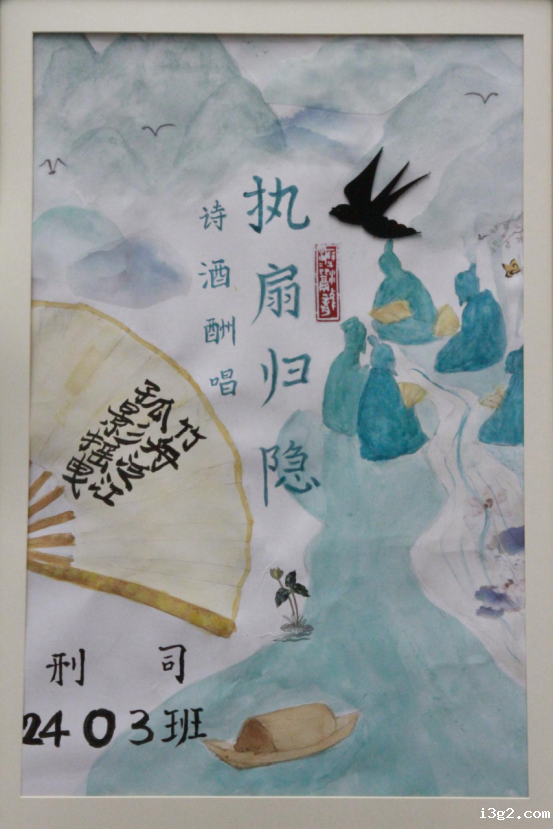 执扇归隐
诗酒酬唱
竹舟泛江
孤影摇曳
刑司
2403班
i3g2.com